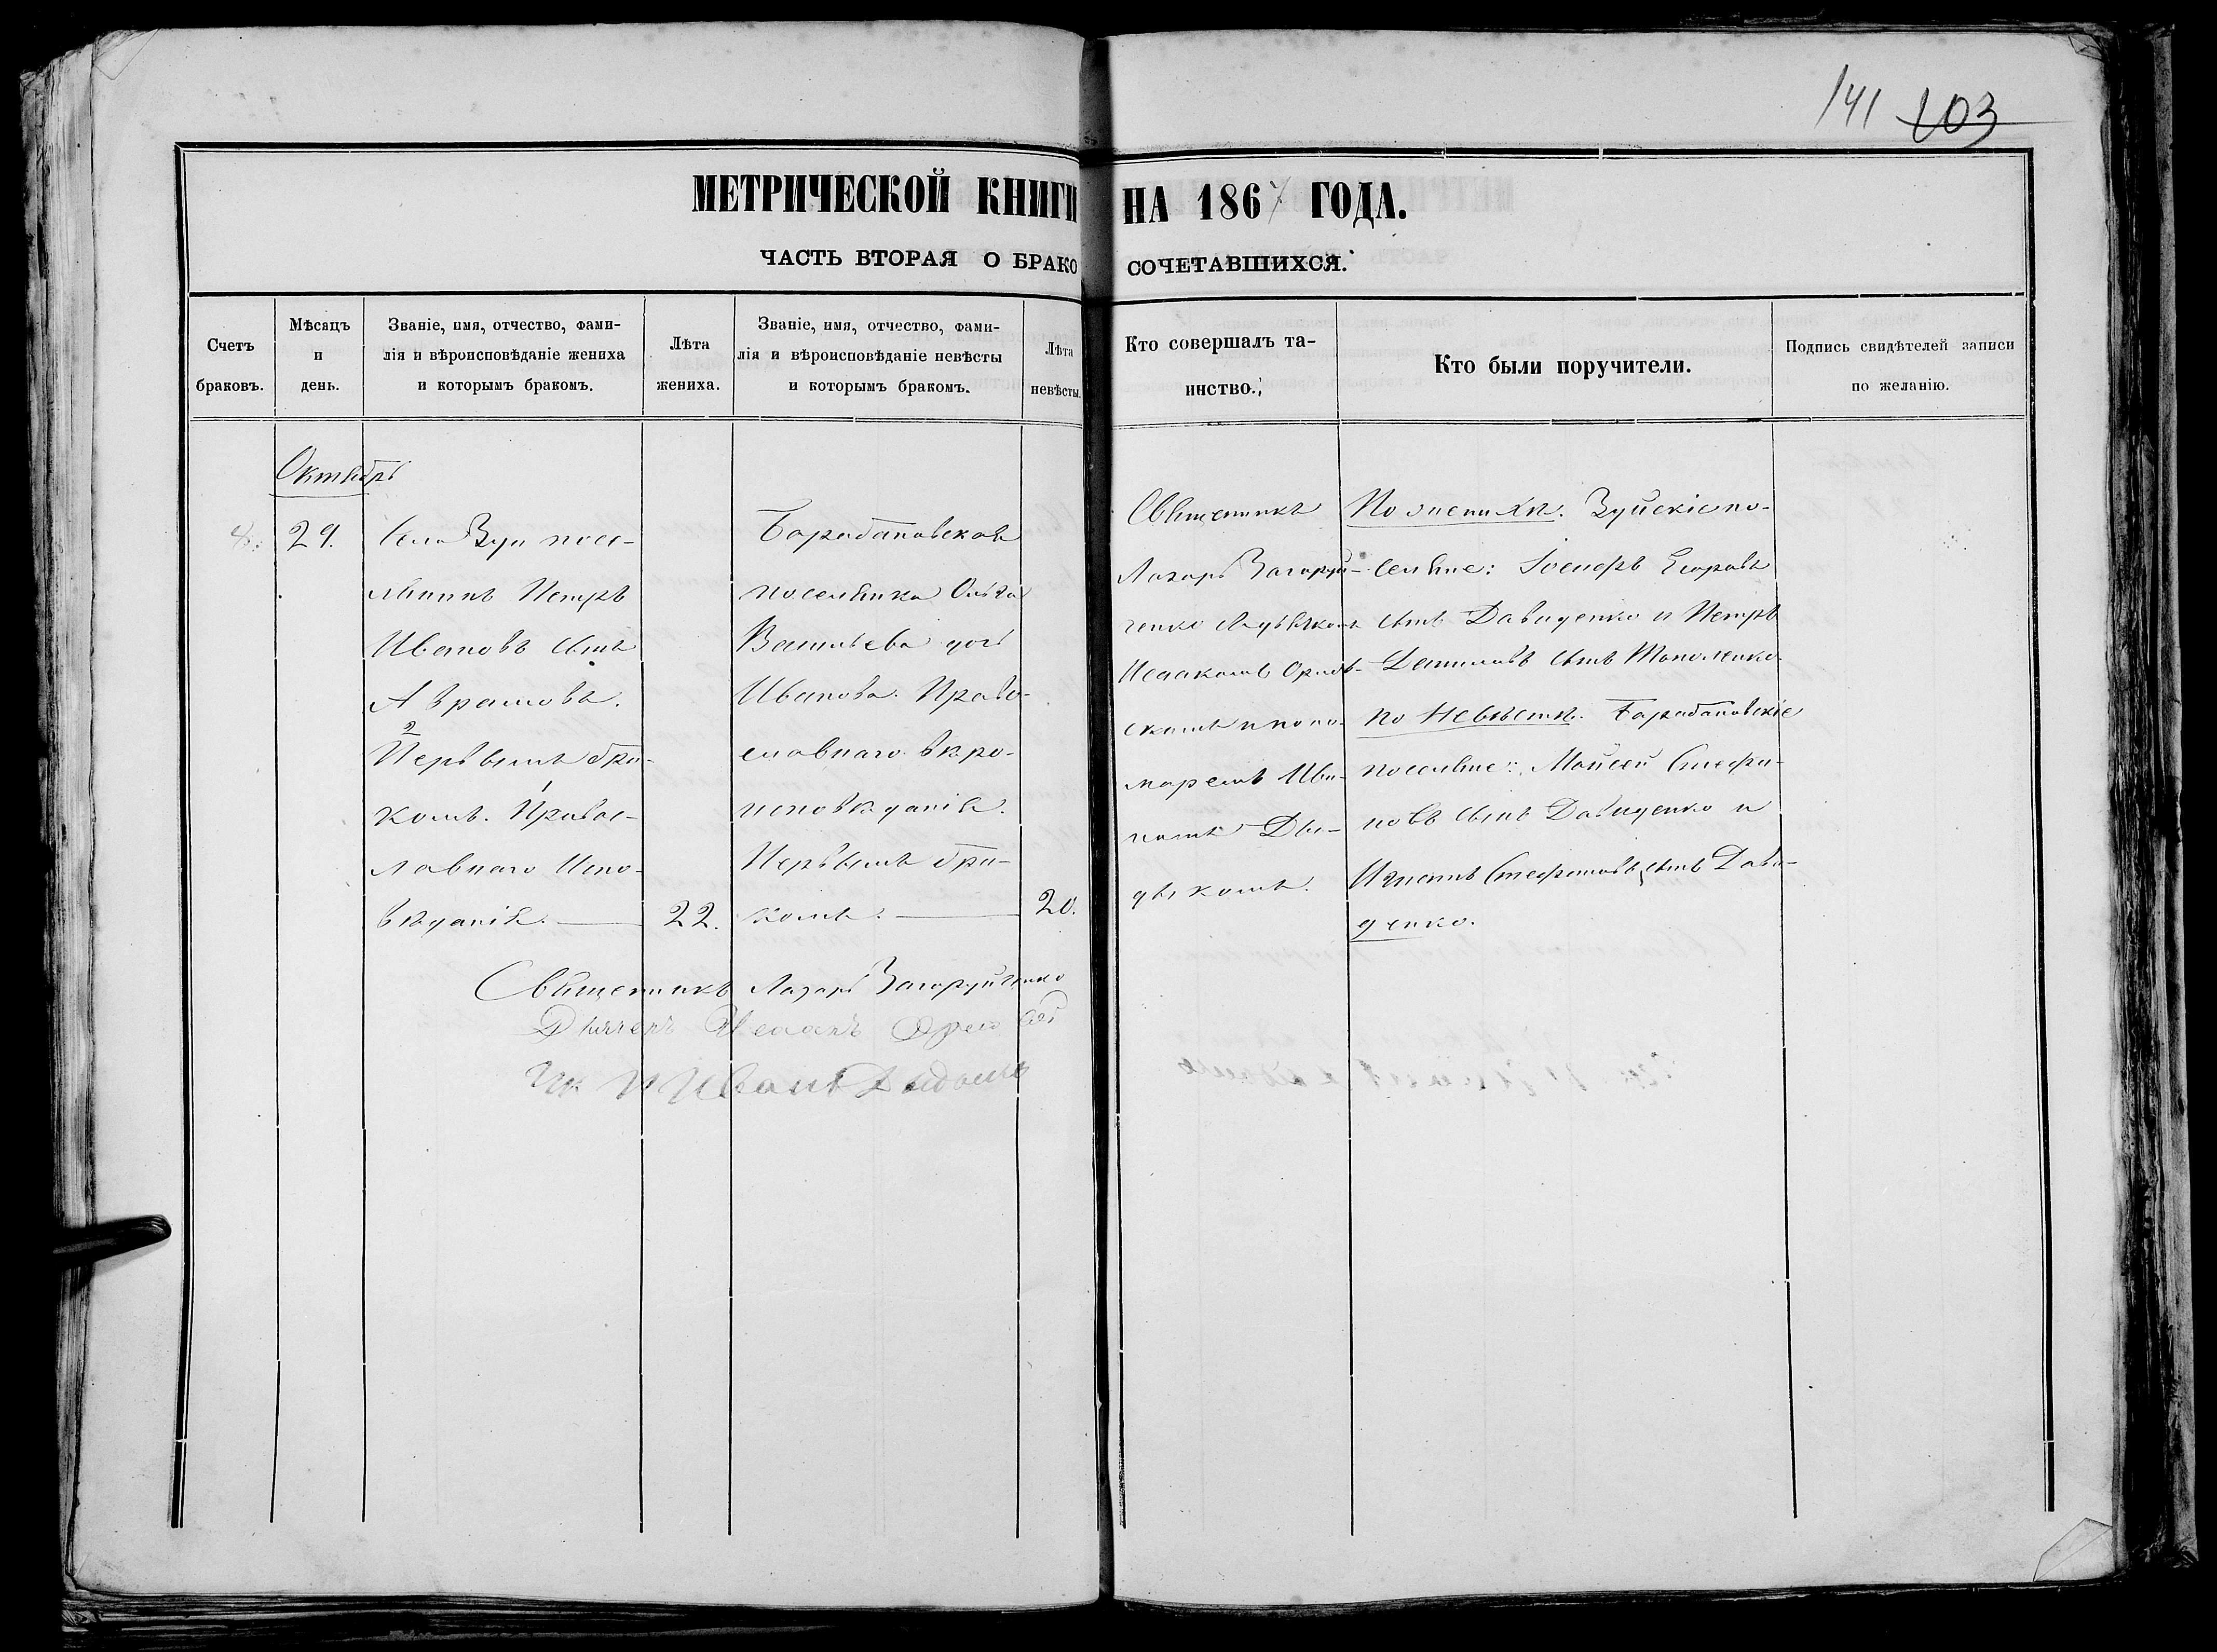 141 103
МЕТРИЧЕСКОЙ КНИГИ НА 1867 ГОДА.
ЧАСТЬ ВТОРАЯ О БРАКОСОЧЕТАВШИХСЯ.
Счетъ
браковъ.
Мѣсяцъ
и
день.
Званіе, имя, отчество, фами-
лія и вѣроисповѣданіе жениха
и которымъ бракомъ.
Лѣта
жениха.
Званіе, имя, отчество, фами-
лія и вѣроисповѣданіе невѣсты
и которымъ бракомъ.
Лѣта
невѣсты.
Кто совершалъ та-
инство.
Кто были поручители.
Подпись свидѣтелей записи
по желанію.
Октябрь
29.
Села Зуи посе-
лянинъ Петръ
Ивановъ сынъ
Аврамовъ.
2 1
Первымъ бра-
комъ. Правос-
лавнаго Испо-
вѣданія.
22.
Барабановская
поселянка Ольга
Васильева дочь
Иванова. Право-
славнаго вѣро-
исповѣданія.
Первымъ бра-
комъ.
20.
Священникъ
Лазарь Загоруй-
ченко съ дьячкомъ
Исаакомъ Орлов-
скимъ и поно-
маремъ Ива-
номъ Ды-
дыкомъ.
По женихѣ. Зуйскіе по-
селяне: Іосифъ Егоровъ
сынъ Давиденко и Петръ
Даниловъ сынъ Тополенко.
по Невѣстѣ. Барабановскіе
поселяне: Моисей Стефа-
новъ сынъ Давиденко и
Игнатъ Стефановъ сынъ Дави-
денко.
Священникъ Лазарь Загоруйченко
Дьячекъ Исаакъ Орловскій
Иванъ